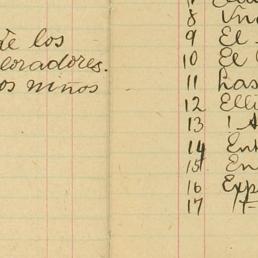 de los
loradores.
os niños
8 Una
9 El
10 El
11 Las
12 Elli
13 ¡A
14 Ent
15 En
16 Exp
17